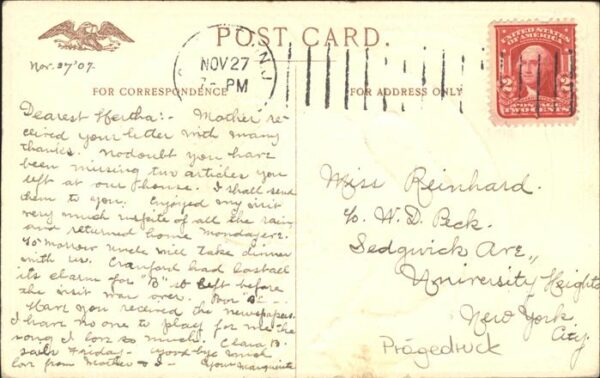 POST CARD.
Nov. 27 '07.
NOV 27
PM
N.J.
FOR CORRESPONDENCE
FOR ADDRESS ONLY
UNITED STATES OF AMERICA
2 2
POSTAGE
TWO CENTS
Dearest Hertha:- Mother re-
ceived your letter with many
thanks. No doubt you have
been missing two articles you
left at our house. I shall send
them to you. Enjoyed my visit
very much inspite of all the rain
and returned home Monday eve.
To-morrow Uncle will take dinner
with us. Cranford had lost all
its charm for "B" so left before
the visit was over. Poor "B" -
Have you received the newspapers.
I have no one to play for me the
song I love so much. Clara B.
Friday - Good-bye much
love from Mother & I - Your Marguerite
Miss Reinhard.
c/o W. D. Peck.
Sedgwick Ave.,
University Heights
New York
City.
Prägedruck